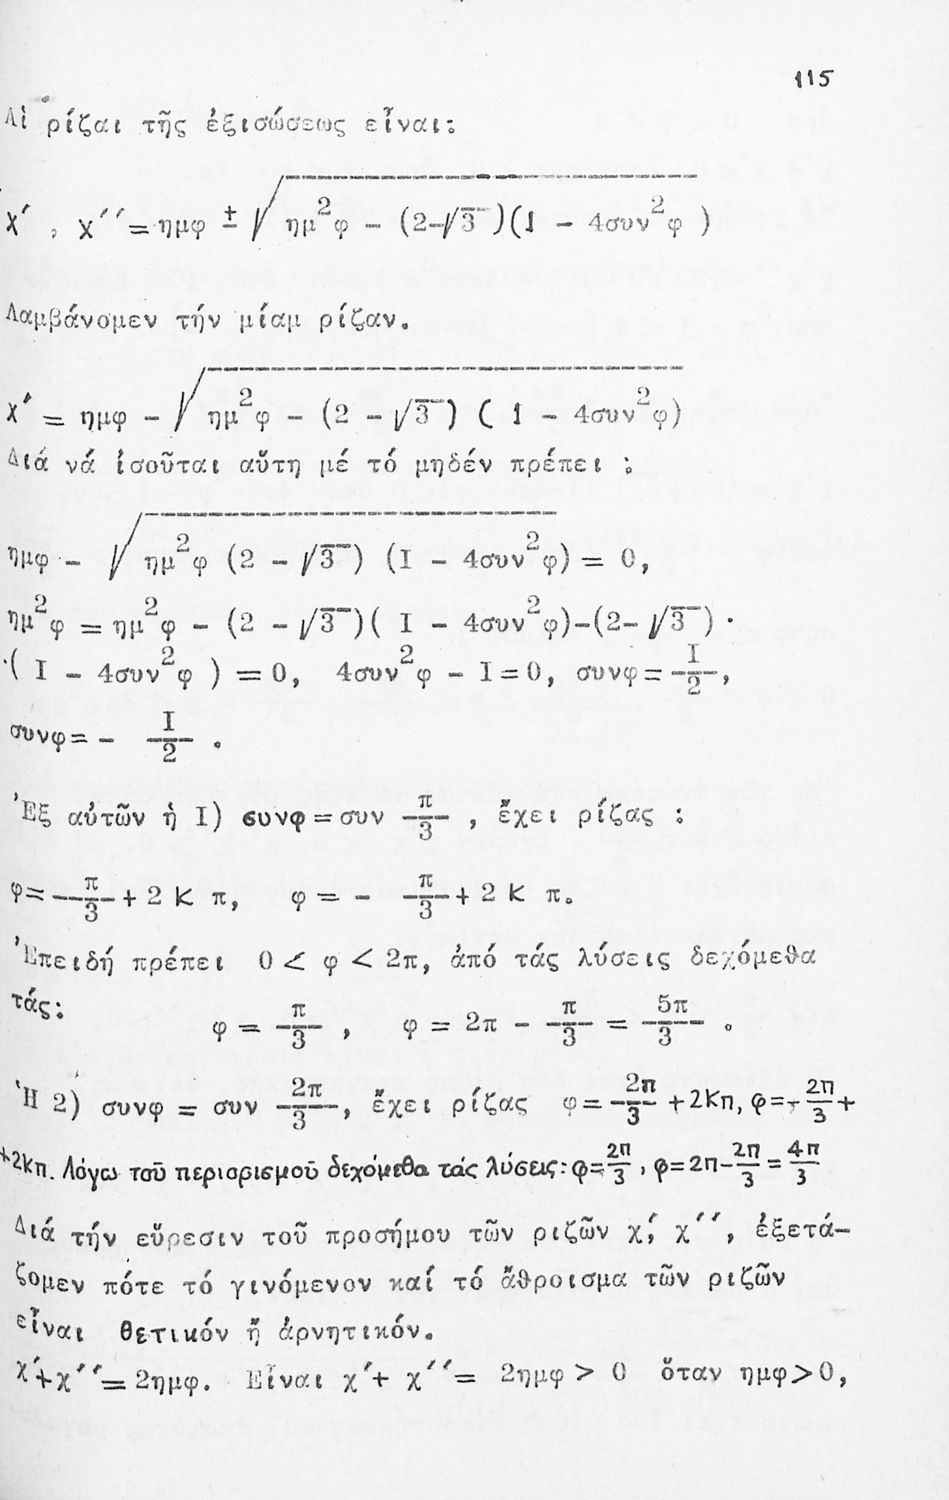 115
Αἱ ρίζαι τῆς ἐξισώσεως εἶναι:
χ΄ , χ΄΄= ημφ ± √ ημ²φ - (2-√3)(1 - 4συν²φ )
Λαμβάνομεν τήν μίαμ ρίζαν.
χ΄ = ημφ - √ ημ²φ - (2 - √3) ( 1 - 4συν²φ)
Διά νά ἰσοῦται αὕτη μέ τό μηδέν πρέπει :
ημφ - √ ημ²φ (2 - √3) (I - 4συν²φ) = 0,
ημ²φ = ημ²φ - (2 - √3)( I - 4συν²φ)-(2- √3) ·
·( I - 4συν²φ ) = 0, 4συν²φ - 1 = 0, συνφ = I/2,
συνφ= - I/2 .
Ἐξ αὐτῶν ἡ I) συνφ = συν π/3 , ἔχει ρίζας :
φ= π/3 + 2 Κ π, φ = - π/3 + 2 κ π.
Ἐπειδή πρέπει 0 < φ < 2π, ἀπό τάς λύσεις δεχόμεθα
τάς: φ = π/3 , φ = 2π - π/3 = 5π/3 .
Ἡ 2) συνφ = συν 2π/3, ἔχει ρίζας φ = 2π/3 + 2Κπ, φ=- 2π/3 +
+2κπ. Λόγω τοῦ περιορισμοῦ δεχόμεθα τάς λύσεις: φ= 2π/3 , φ=2π- 2π/3 = 4π/3
Διά τήν εὕρεσιν τοῦ προσήμου τῶν ριζῶν χ΄, χ΄΄, ἐξετά-
ζομεν πότε τό γινόμενον καί τό ἄθροισμα τῶν ριζῶν
εἶναι θετικόν ἤ ἀρνητικόν.
χ΄+χ΄΄= 2ημφ. Εἶναι χ΄+ χ΄΄= 2ημφ > 0 ὅταν ημφ>0,